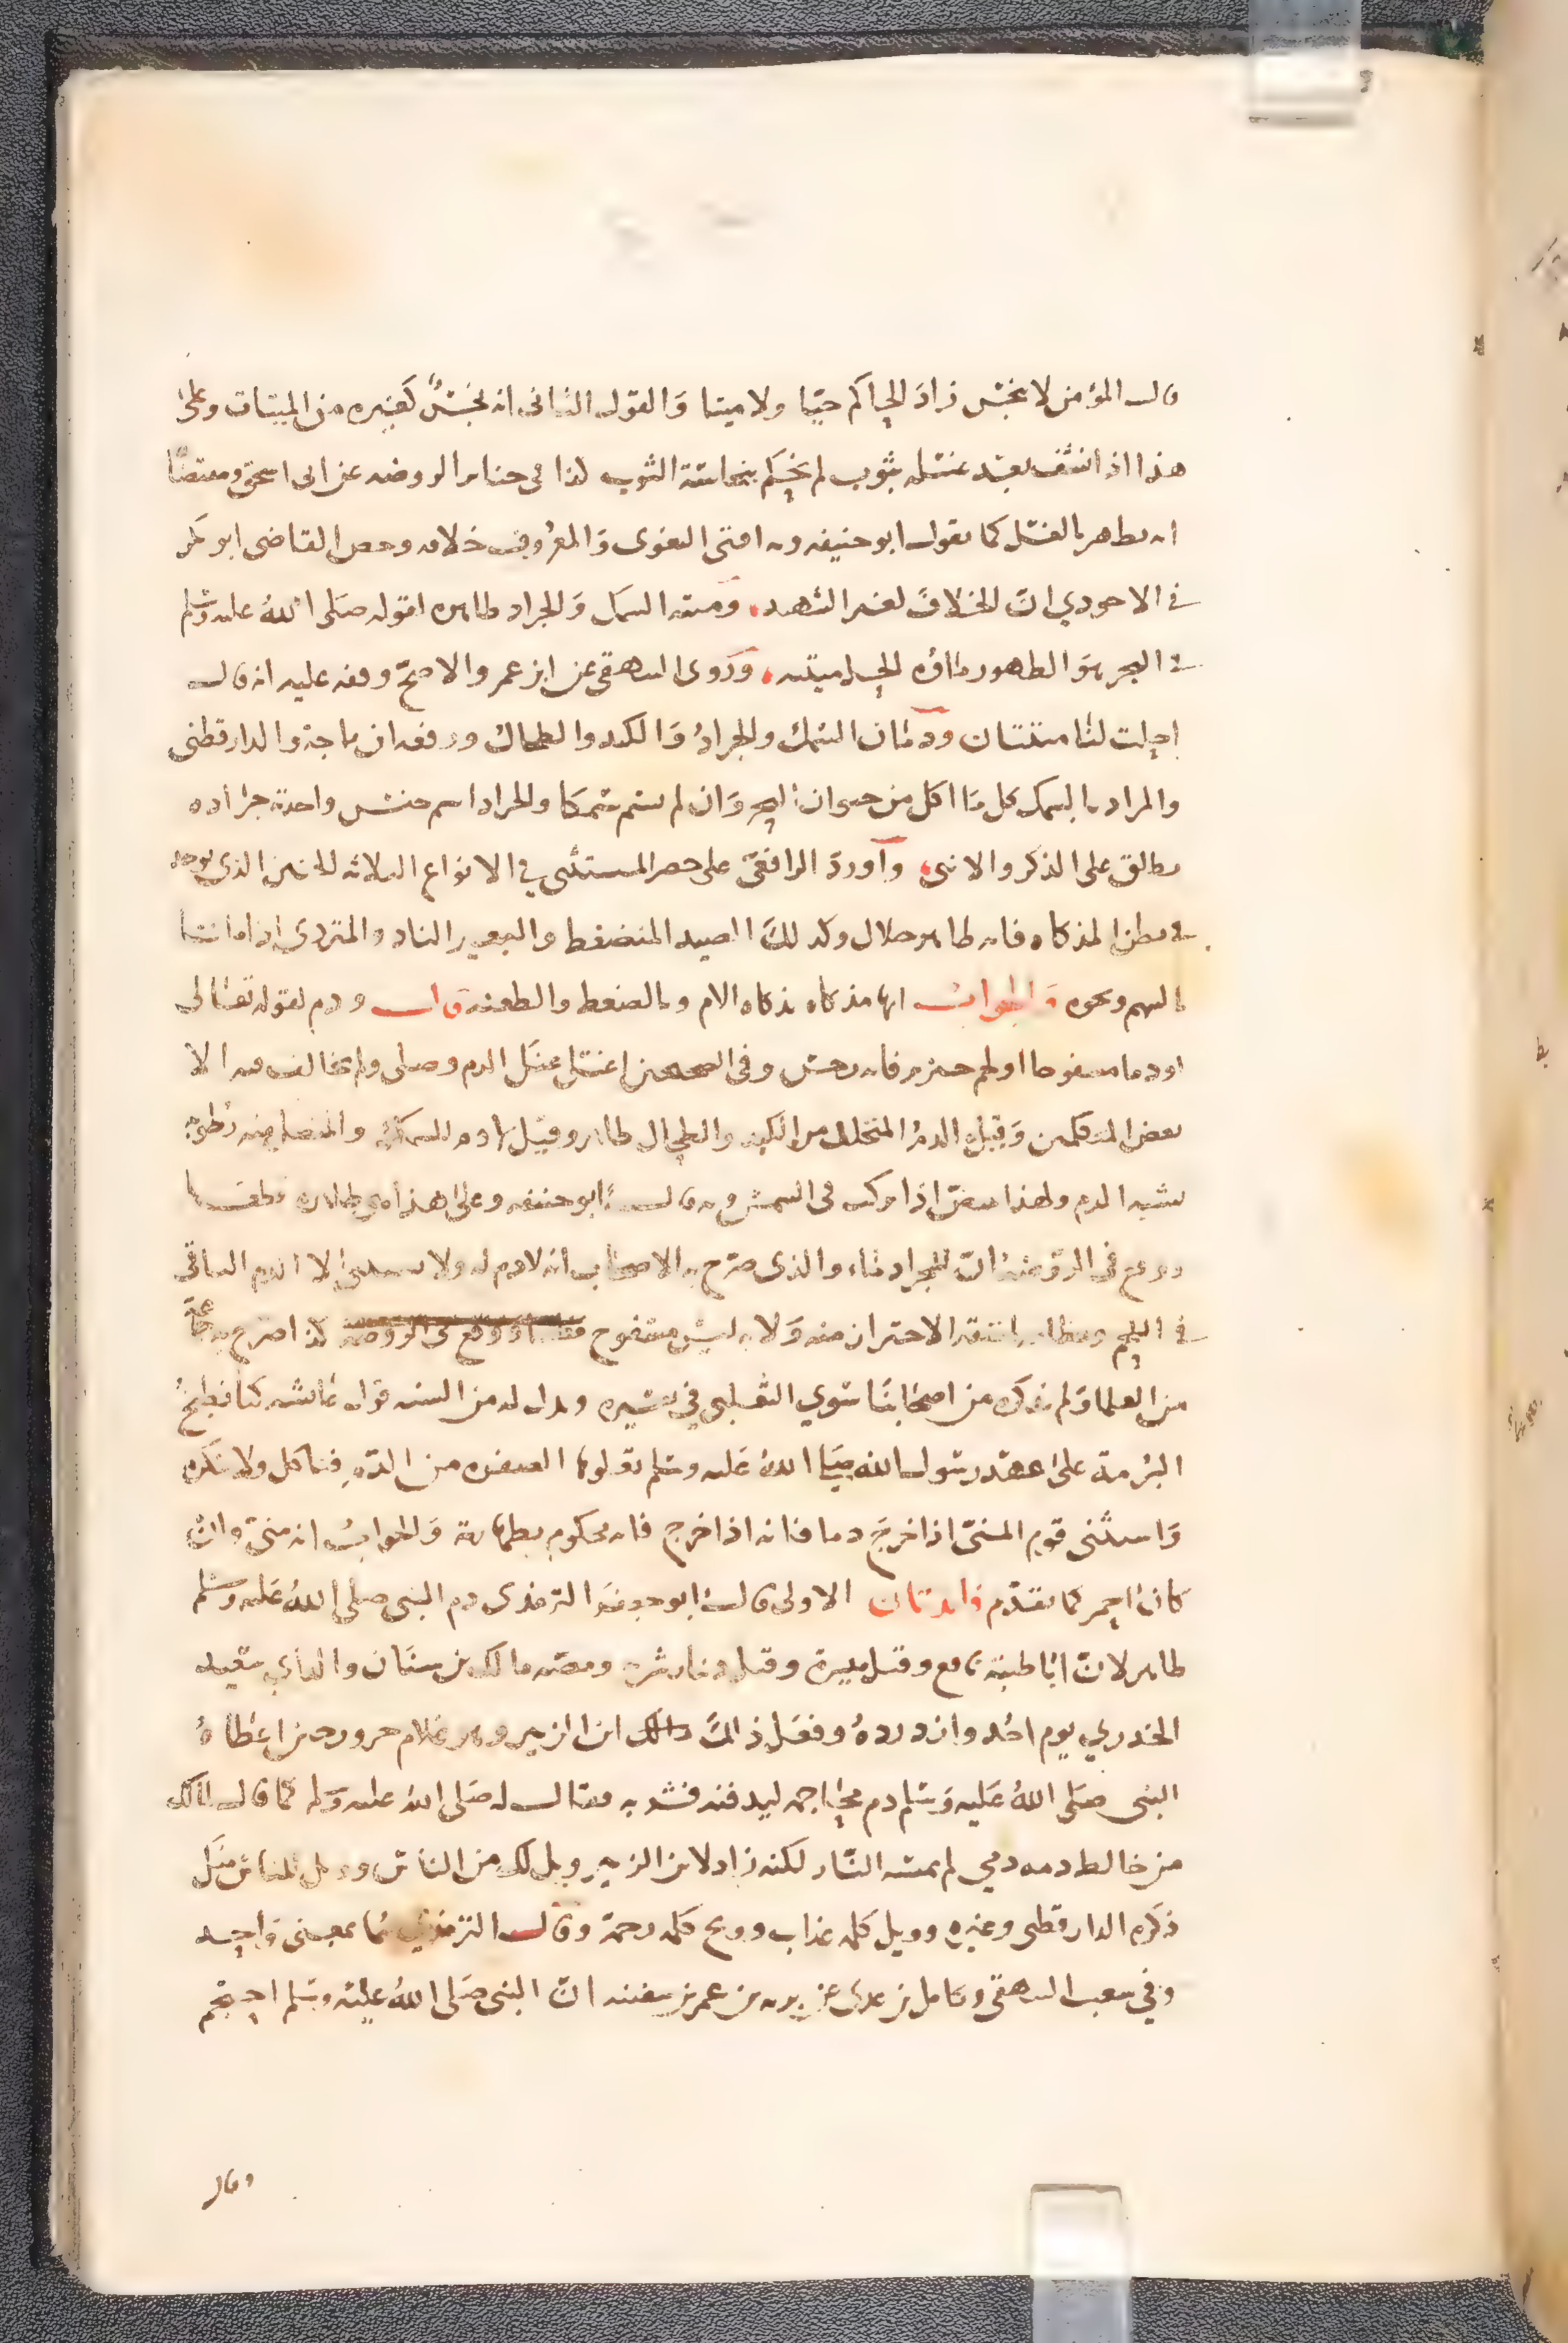 قال المؤمن لا ينجس زاد الحاكم حيّا ولا ميتا وَالقول الثانى انه نجسٌ كغيره من الميتات وعلى
هذا اذا نشف بعد غسله بثوب لم يحكم بنجاسة الثوب كذا فى جنائز الروضه عن ابى اسحق ومقتضا
انه يطهر بالغسل كما يقول ابو حنيفه وبه افتى البغوى وَالمعروف خلافه وخص القاضى ابو بكر
فى الاحوذي انّ الخلاف لغير الشهيد، وميتة السمك وَالجراد طاهره لقوله صَلى اللهُ عليه وسلم
فى البحر هوَ الطهور ماؤه الحل ميتته، وَروى البيهقى عن ابن عمر والاصحّ وقفه عليه انه قال
احلت لنا ميتتان ودمان السمك والجرادُ وَالكبد والطحال ورفعه ابن ماجة والدارقطنى
والمراد بالسمك كل مَا اكل من حيوان البحر وَان لم يسم سَمكا والجراد اسم جنس واحدة جراده
يطلق على الذكر والانثى، وَأورد الرافعى على حصر المستثنى في الانواع الثلاثه الجنين الذى يوجد
فى بطن المذكاه فانه طاهر حلال وكذلك الصيد المنضغط والبعير الناد والمتردى اذا ماتا
بالسهم ونحوه وَالجواب انها مذكاه بذكاه الام وبالضغط والطعنه قال ودم لقوله تعَالى
اودما مسفوحا اولحم خنزير فانه رجس وفى الصحيحين اغسلى عنك الدم وصلى ولم يخالف فيه الا
بعض المتكلمين وَقيل الدمُ المتحلل من الكبد والطحال طاهر وقيل بهاد دم السمك والمنفصل منه رطوبة
تشبه الدم ولهذا تبيضّ اذا تركت فى الشمس وبه قال ابو حنيفه وعلى هذا هي طاهره قطعَا
ووقع فى الروضة انّ للجراد دماء والذى صرّح به الاصحاب انه لا دم له ولا يستثنى الا الدم الباقى
فى اللحم وعظامه لمشقة الاحتراز منه وَلانه ليس مسفوح كذا صرح به جماعة
من العلما وَلم يذكره من اصحابنَا سوي الثعلبى في تفسيره ويدل له من السنه قول عَائشه كنا نطبخُ
البُرمة علىَ عهد رسول الله صَلى اللهُ عَليه وسَلم تعلوها الصفره من الدّم فناكل ولا ننكره
وَاستثنى قوم المنىّ اذا خرج دما فانه اذا خرج فانه محكوم بطهارته وَالجوابُ انه منىّ وانْ
كان احمر كما تقدّم فائدتان الاولى قال ابو جعفر الترمذى دم النبى صلى اللهُ عَليه وسلم
طاهر لانّ ابَا طيبة وقتل ومصّه مالك بن سنَان والد أبي سعيد
الخدري يوم احُد وازدردهُ وفعَل ذالكَ ابن الزبير وهو غلام حزور حين اعْطاهُ
النبى صَلى اللهُ عَليه وَسَلم دم محَاجمه ليدفنه فشربه فقال له صَلى اللهُ عليه وَسلم كما قال لمالك
من خالط دمه دمي لم تمسه النّار لكنه زاد لابن الزبير ويل لك من الناس وويل للناس منك
ذكره الدارقطنى وغيره وويل كلمة عذاب وويح كلمة رحمة وقال الترمذي هما بمعنى وَاحد
وَفي شعب البيهقى وكامل بن عدى عن بريه بن عمر بن سفينه انّ النبى صَلى اللهُ عَليه وَسَلم احتجم
وقال